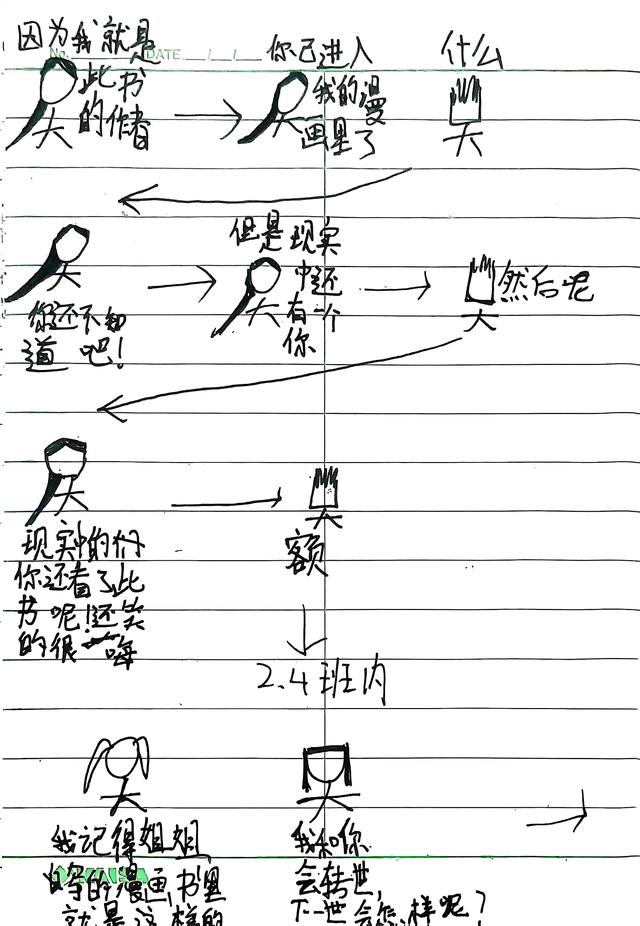 因为我就是
此书
的作者
No.
DATE
你已进入
我的漫
画里了
什么
你还不知
道 吧!
但是现实
中还
有一个
你
然后呢
现实中的
你还看了此
书呢!还笑
的很 嗨
额
2.4班内
我记得姐姐,
的漫画书里
就是这样的
我和你
会转世,
下一世会怎样呢?